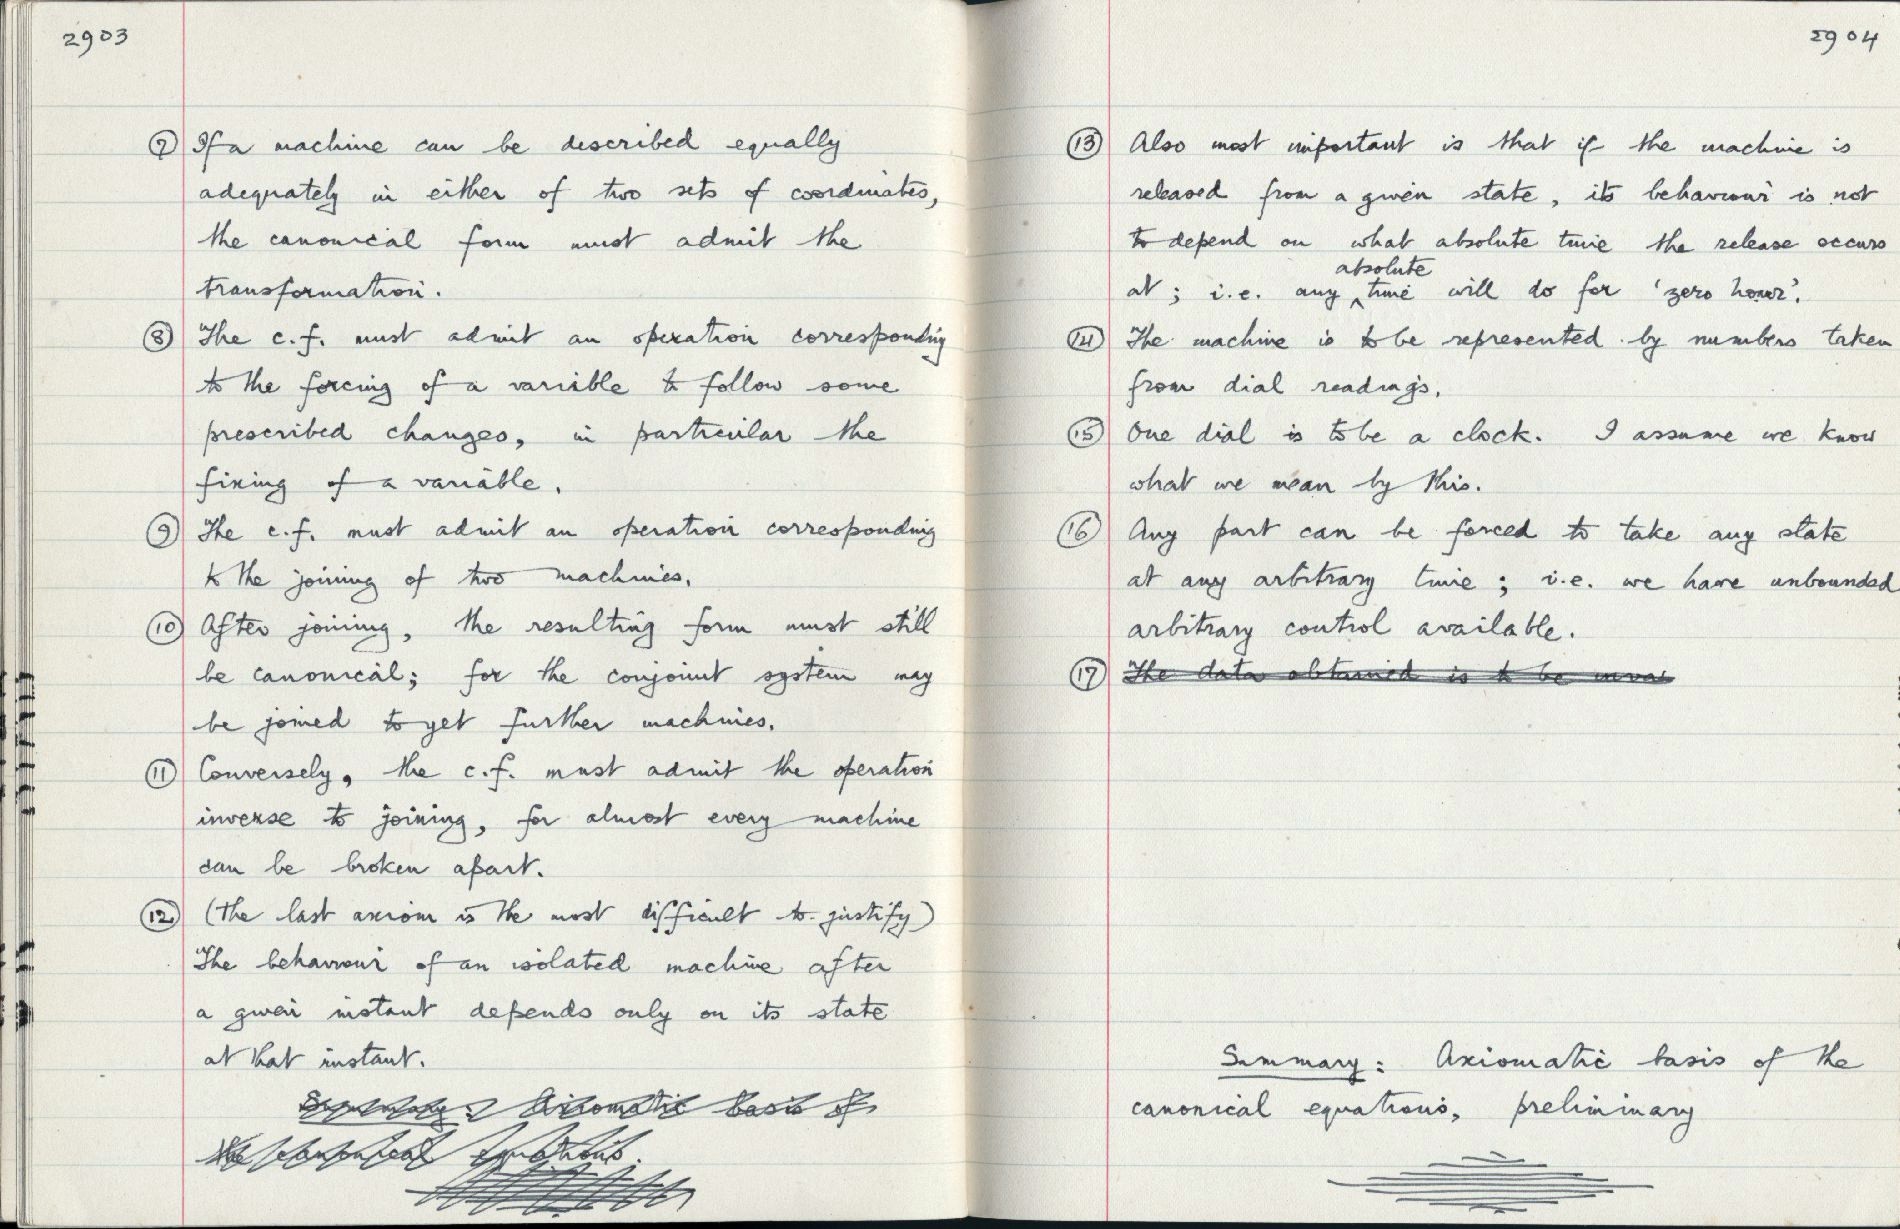 2903
⑦ If a machine can be described equally
adequately in either of two sets of coordinates,
the canonical form must admit the
transformation.
⑧ The c.f. must admit an operation corresponding
to the forcing of a variable to follow some
prescribed changes, in particular the
fixing of a variable.
⑨ The c.f. must admit an operation corresponding
to the joining of two machines.
⑩ After joining, the resulting form must still
be canonical; for the conjoint system may
be joined to yet further machines.
⑪ Conversely, the c.f. must admit the operation
inverse to joining, for almost every machine
can be broken apart.
⑫ (the last axiom is the most difficult to justify)
The behaviour of an isolated machine after
a given instant depends only on its state
at that instant.
Summary: Axiomatic basis of
the canonical equations.
2904
⑬ Also most important is that if the machine is
released from a given state, its behaviour is not
to depend on what absolute time the release occurs
absolute
at; i.e. any time will do for 'zero hour'.
⑭ The machine is to be represented by numbers taken
from dial readings.
⑮ One dial is to be a clock. I assume we know
what we mean by this.
⑯ Any part can be forced to take any state
at any arbitrary time; i.e. we have unbounded
arbitrary control available.
⑰ The data obtained is to be invar
Summary: Axiomatic basis of the
canonical equations, preliminary